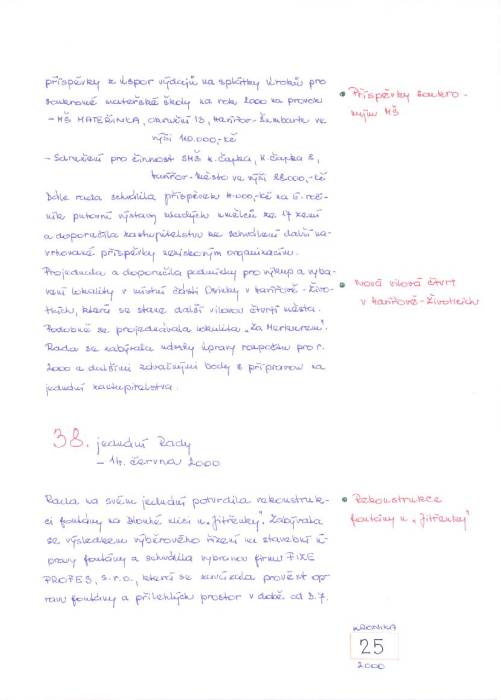 příspěvky z úspor výdajů na splátky úroků pro
soukromé mateřské školy na rok 2000 na provoz
– MŠ MATEŘINKA, okružní 13, Havířov-Šumbark ve
výši 110.000,-Kč
– Sdružení pro činnost SMŠ K. Čapka, K. Čapka 8,
Havířov-Město ve výši 88.000,-Kč
Dále rada schválila příspěvek 4.000,-Kč na II. roč-
ník putovní výstavy mladých umělců ze 17 zemí
a doporučila zastupitelstvu ke schválení další na-
vrhované příspěvky neziskovým organizacím.
Projednala a doporučila podmínky pro výkup a vyba-
vení lokality v místní části Dolnky v Havířově-Živo-
ticích, která se stane další vilovou čtvrtí města.
Podobně se projednávala lokalita „Za Merkurem".
Rada se zabývala návrhy úpravy rozpočtu pro r.
2000 a dalšími závažnými body k přípravám na
jednání zastupitelstva.
Příspěvky soukro-
mým MŠ
Nová vilová čtvrť
v Havířově-Životicích
38. jednání Rady
– 14. června 2000
Rada na svém jednání potvrdila rekonstruk-
ci fontány na Dlouhé ulici u „Jitřenky". Zabývala
se výsledkem výběrového řízení na stavební ú-
pravy fontány a schválila vybranou firmu FIXE
PROFES, s.r.o., která se zavázala provést op-
ravu fontány a přilehlých prostor v době od 3.7.
Rekonstrukce
fontány u „Jitřenky"
KRONIKA
25
2000